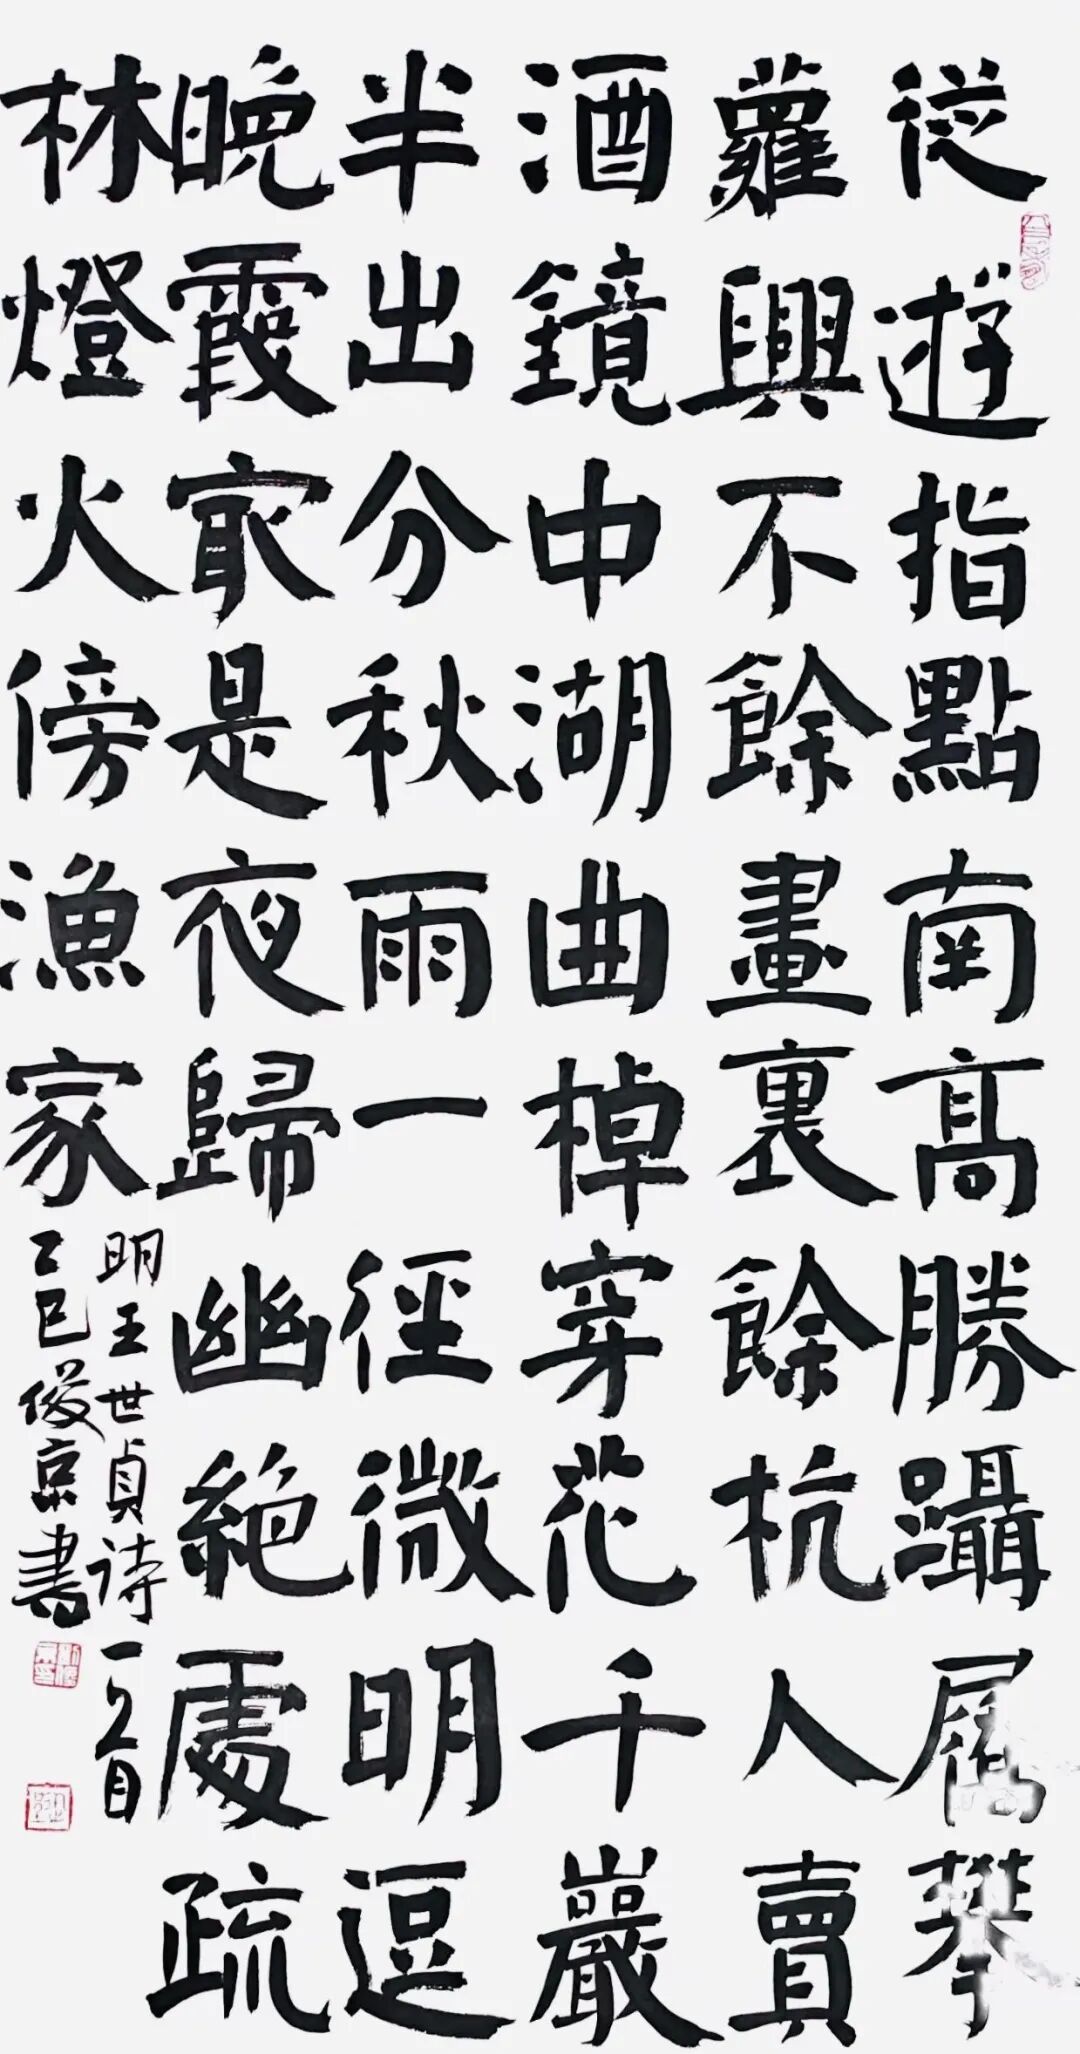 従遊指點南高勝躡屩攀
蘿興不餘畫裏餘杭人賣
酒鏡中湖曲棹穿花千巖
半出分秋雨一徑微明逗
晚霞㝡是夜歸幽絕處疏
林燈火傍漁家
明王世貞诗一首
乙巳俊京書